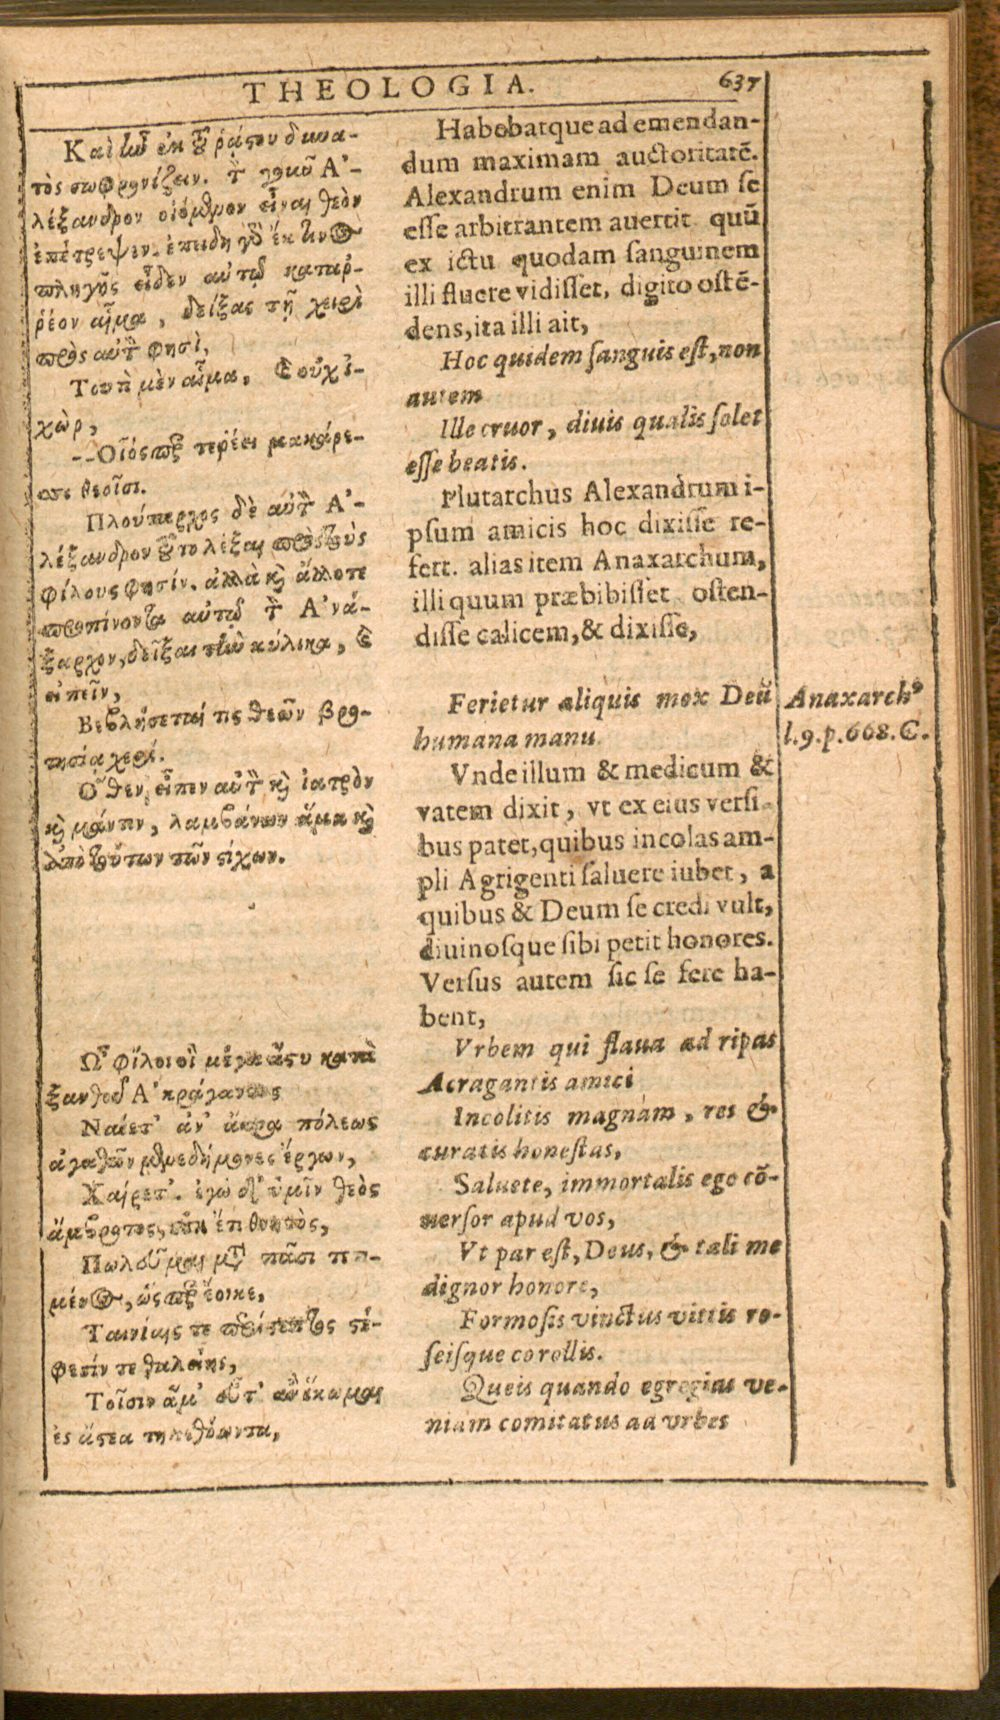 THEOLOGIA. 637
Καὶ ἦν ἐκ τοῦ ῥᾴστου δυνα-
τὸς σωφρονίζειν. τὸν γοῦν Ἀ-
λέξανδρον οἰόμενον εἶναι θεὸν
ἐπέτρεψεν. ἐπειδὴ γὰρ ἔκ τινος
πληγῆς εἶδεν αὐτῷ καταρ-
ρέον αἷμα, δείξας τῇ χειρὶ
πρὸς αὐτὸν φησὶ,
Τουτὶ μὲν αἷμα, καὶ οὐχ ἰ-
χὼρ,
--Οἷός περ τε ῥέει μακάρε-
σσι θεοῖσι.
Πλούταρχος δὲ αὐτὸν Ἀ-
λέξανδρον τοῦτο λέξαι πρὸς τοὺς
φίλους φησίν. ἀλλὰ καὶ ἄλλοτε
προπίνοντα αὐτῷ τὸν Ἀνά-
ξαρχον, δεῖξαι τὴν κύλικα, καὶ
εἰπεῖν,
Βεβλήσεταί τις θεῶν βρο-
τησίᾳ χερί.
Ὅθεν εἶπεν αὐτὸν καὶ ἰατρὸν
καὶ μάντιν, λαμβάνων ἅμα καὶ
ἀπὸ τούτων τῶν στίχων.
Ὦ φίλοι οἳ μέγα ἄστυ κατὰ
ξανθοῦ Ἀκράγαντος
Ναίετ' ἀν' ἄκρα πόλεως
ἀγαθῶν μεμεδήμονες ἔργων,
Χαίρετ'. ἐγὼ δ' ὑμῖν θεὸς
ἄμβροτος, οὐκ ἔτι θνητὸς,
Πωλοῦμαι μετὰ πᾶσι τετι-
μένος, ὥς περ ἔοικε,
Ταινίαις τε περίστεπτος στέ-
φεσίν τε θαλείης,
Τοῖσιν ἅμ' οὖτ' ἂν ἵκωμαι
ἐς ἄστεα τηλεθόωντα,
Habebatque ad emendan-
dum maximam auctoritatē.
Alexandrum enim Deum se
esse arbitrantem auertit. quū
ex ictu quodam sanguinem
illi fluere vidisset, digito ostē-
dens, ita illi ait,
Hoc quidem sanguis est, non
autem
Ille cruor, diuis qualis solet
esse beatis.
Plutarchus Alexandrum i-
psum amicis hoc dixisse re-
fert. alias item Anaxarchum,
illi quum præbibisset osten-
disse calicem, & dixisse,
Ferietur aliquis mox Deū
humana manu.
Vnde illum & medicum &
vatem dixit, vt ex eius versi-
bus patet, quibus incolas am-
pli Agrigenti saluere iubet, a
quibus & Deum se credi vult,
diuinosque sibi petit honores.
Versus autem sic se fere ha-
bent,
Vrbem qui flaua ad ripas
Acragantis amici
Incolitis magnam, res &
curatis honestas,
Saluete, immortalis ego cō-
uersor apud vos,
Vt par est, Deus, & tali me
dignor honore,
Formosis vinctus vittis ro-
seisque corollis.
Queis quando egregias ve-
niam comitatus ad vrbes
Anaxarch⁹
l.9.p.668.C.